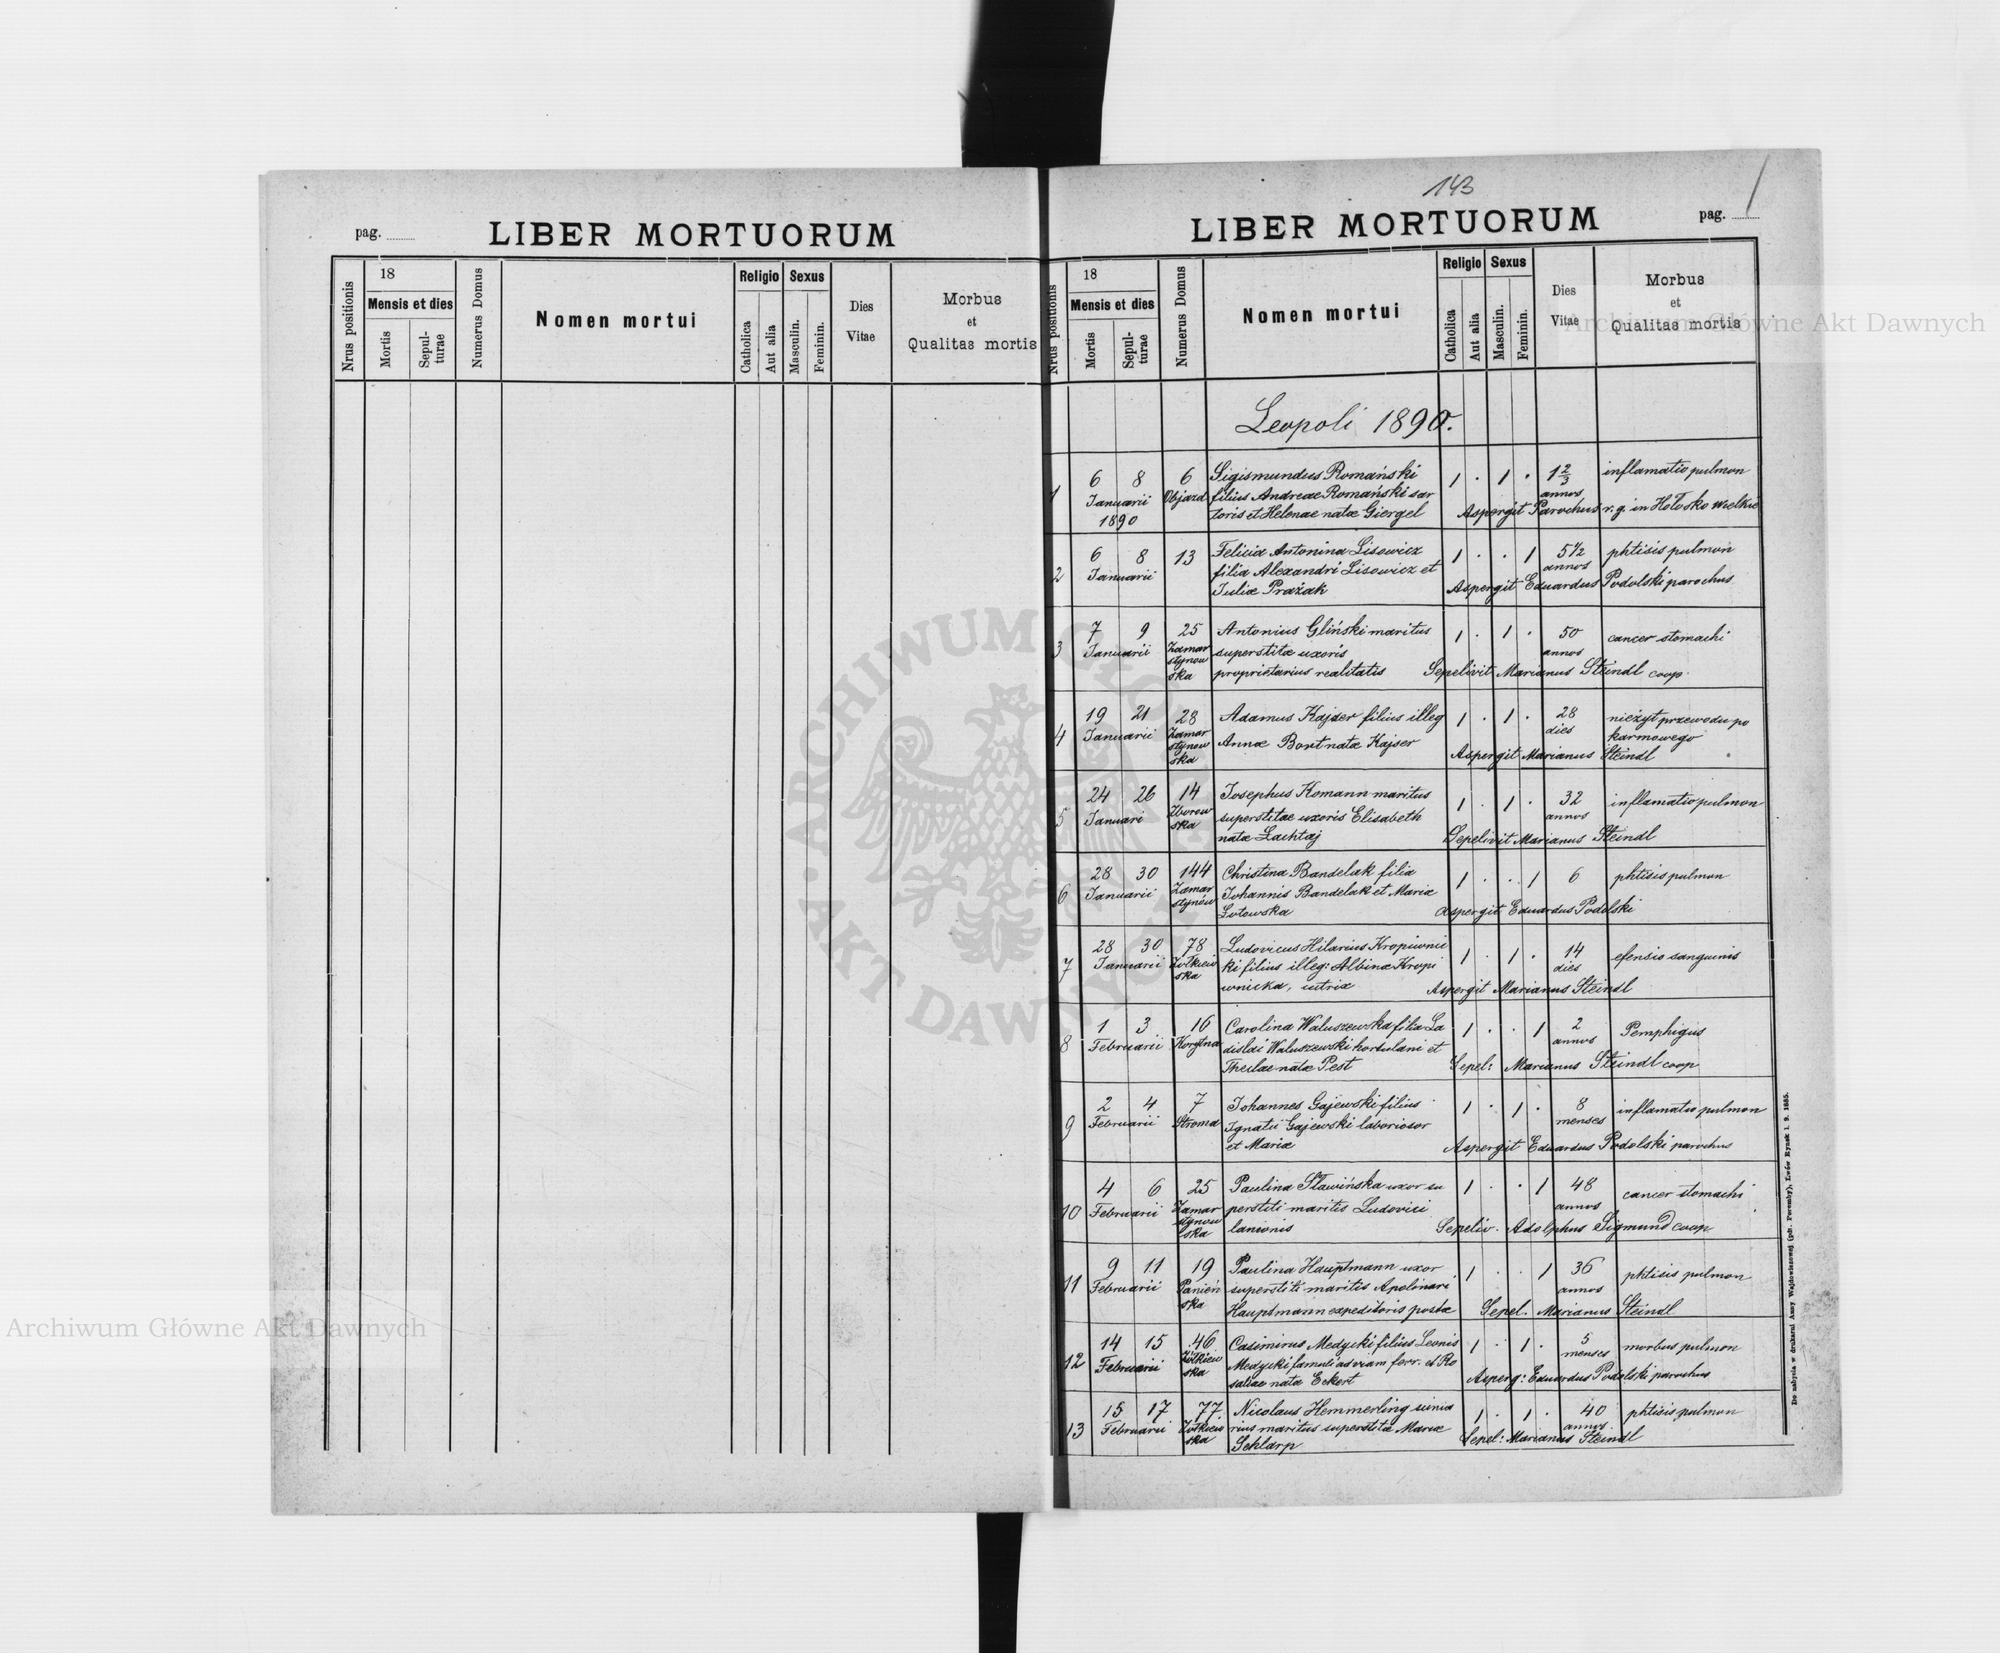 pag.
LIBER MORTUORUM
Nrus positionis
18
Mensis et dies
Mortis
Sepul-
turae
Numerus Domus
Nomen mortui
Religio
Catholica
Aut alia
Sexus
Masculin.
Feminin.
Dies
Vitae
Morbus
et
Qualitas mortis
143
LIBER MORTUORUM
pag. 1
Nrus positionis
18
Mensis et dies
Mortis
Sepul-
turae
Numerus Domus
Nomen mortui
Religio
Catholica
Aut alia
Sexus
Masculin.
Feminin.
Dies
Vitae
Morbus
et
Qualitas mortis
Leopoli 1890.
1 6 8 6 Sigismundus Romański 1 . 1 . 1 2/3 inflamatio pulmon
Januarii Objazd filius Andreae Romański sar annos
1890 toris et Helenae natae Giergel Aspergit Parochus r. g. in Hołosko wielkie
2 6 8 13 Felicia Antonina Lisowicz 1 . . 1 5 1/2 phtisis pulmon
Januarii filia Alexandri Lisowicz et annos
Juliae Prażak Aspergit Eduardus Podolski parochus
3 7 9 25 Antonius Gliński maritus 1 . 1 . 50 cancer stomachi
Januarii Zamar superstitae uxoris annos
stynow
ska proprietarius realitatis Sepelivit Marianus Steindl coop.
4 19 21 28 Adamus Kajser filius illeg 1 . 1 . 28 nieżyt przewodu po
Januarii Zamar dies karmowego
stynow Annae Bort natae Kajser
ska Aspergit Marianus Steindl
5 24 26 14 Josephus Komann maritus 1 . 1 . 32 inflamatio pulmon
Januari Zborow superstitae uxoris Elisabeth annos
ska natae Lachtaj Sepelivit Marianus Steindl
6 28 30 144 Christina Bandelak filia 1 . . 1 6 phtisis pulmon
Januarii Zamar Johannis Bandelak et Mariae
stynów Lutowska Aspergit Eduardus Podolski
7 28 30 78 Ludovicus Hilarius Kropiwnic 1 . 1 . 14 efensio sanguinis
Januarii Żółkiew ki filius illeg: Albinae Kropi dies
ska wnicka, Aspergit Marianus Steindl
8 1 3 16 Carolina Waluszewska filia La 1 . . 1 2 Pemphigus
Februarii Korytna dislai Waluszewski hortulani et annos
Theclae natae Pest Sepel: Marianus Steindl coop
9 2 4 7 Johannes Gajewski filius 1 . 1 . 8 inflamatio pulmon
Februarii Stroma Ignatii Gajewski laboriosor menses
et Mariae Aspergit Eduardus Podolski parochus
10 4 6 25 Paulina Sławińska uxor su 1 . . 1 48 cancer stomachi
Februarii Zamar perstiti maritis Ludovici annos
stynow
ska lanionis Sepeliv. Adolphus Sigmund coop
11 9 11 19 Paulina Hauptmann uxor 1 . . 1 36 phtisis pulmon
Februarii Panień superstiti maritis Apolinari annos
ska Hauptmann expeditoris postae Sepel. Marianus Steindl
12 14 15 46 Casimirus Medycki filius Leonis 1 . 1 . 5 morbus pulmon
Februarii Żółkiew Medycki famuli ad viam ferr. et Ro menses
ska saliae natae Eckert Asperg: Eduardus Podolski parochus
13 15 17 77 Nicolaus Hemmerling 1 . 1 . 40 phtisis pulmon
Februarii Żółkiew rius maritus superstitae Mariae annos
ska Schlarp Sepel: Marianus Steindl
Do nabycia w drukarni Anny Wajdowiczowej (pdr. Poremby), Lwów Rynek l. 9. 1885.
Archiwum Główne Akt Dawnych
Archiwum Główne Akt Dawnych
ARCHIWUM GŁÓWNE
AKT DAWNYCH